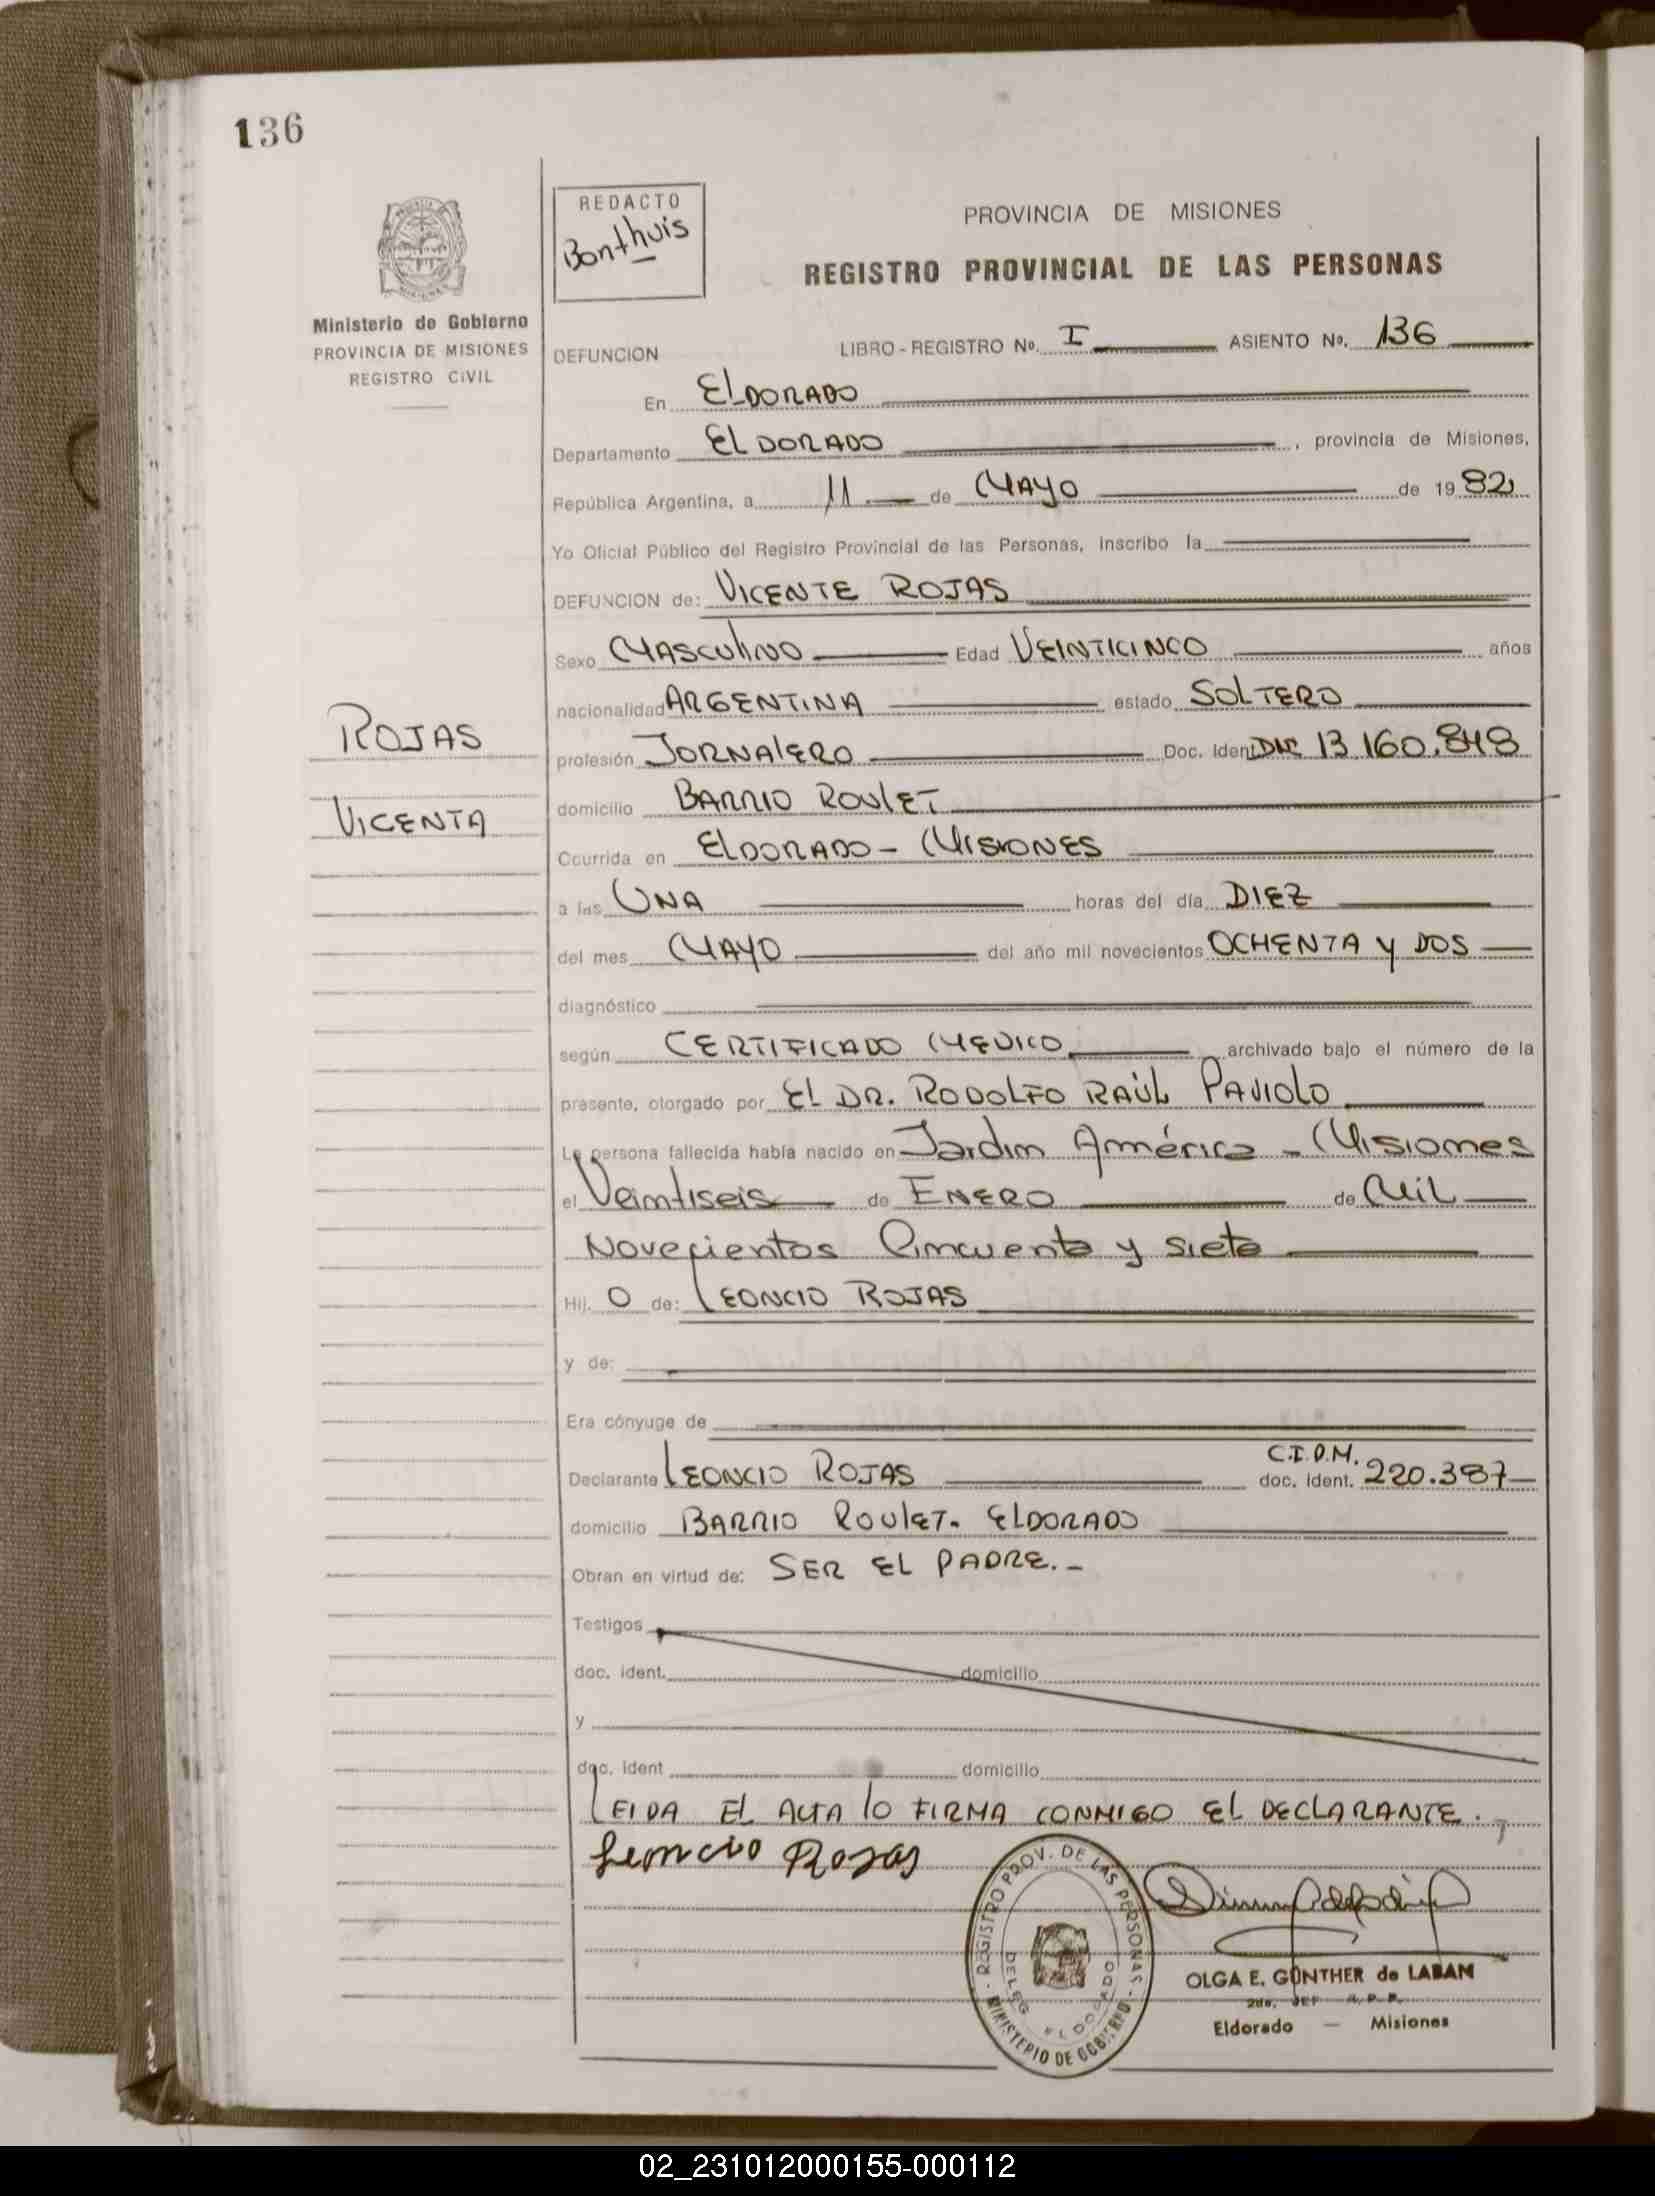 136
REDACTO
Bonthuis
PROVINCIA DE MISIONES
REGISTRO PROVINCIAL DE LAS PERSONAS
Ministerio de Gobierno
PROVINCIA DE MISIONES
REGISTRO CIVIL
DEFUNCION LIBRO - REGISTRO Nº. I ASIENTO Nº. 136
En ELDORADO
Departamento ELDORADO , provincia de Misiones,
República Argentina, a 11 de MAYO de 1982
Yo Oficial Público del Registro Provincial de las Personas, inscribo la
DEFUNCION de: VICENTE ROJAS
Sexo MASCULINO Edad VEINTICINCO años
nacionalidad ARGENTINA estado SOLTERO
ROJAS
profesión JORNALERO Doc. Ident 13.160.848
VICENTA
domicilio BARRIO ROULET
Ocurrida en ELDORADO - MISIONES
a las UNA horas del día DIEZ
del mes MAYO del año mil novecientos OCHENTA y DOS
diagnóstico
según CERTIFICADO MEDICO archivado bajo el número de la
presente, otorgado por EL DR. RODOLFO RAÚL PAVIOLO
La persona fallecida había nacido en Jardim América - Misiones
el Veintiseis de ENERO de Mil
Novecientos Cincuenta y siete
Hij. O de: LEONCIO ROJAS
y de:
Era cónyuge de
Declarante LEONCIO ROJAS C.I.P.M. doc. ident. 220.387
domicilio BARRIO ROULET. ELDORADO
Obran en virtud de: SER EL PADRE.-
Testigos
doc. ident. domicilio
y
doc. ident domicilio
LEIDA EL ACTA lo FIRMA CONMIGO EL DECLARANTE.
Leoncio Rojas
REGISTRO PROV. DE LAS PERSONAS
DELEG. ELDORADO
MINISTERIO DE GOBIERNO
OLGA E. GÜNTHER de LABAN
2da. JEF R.P.P.
Eldorado — Misiones
02_231012000155-000112